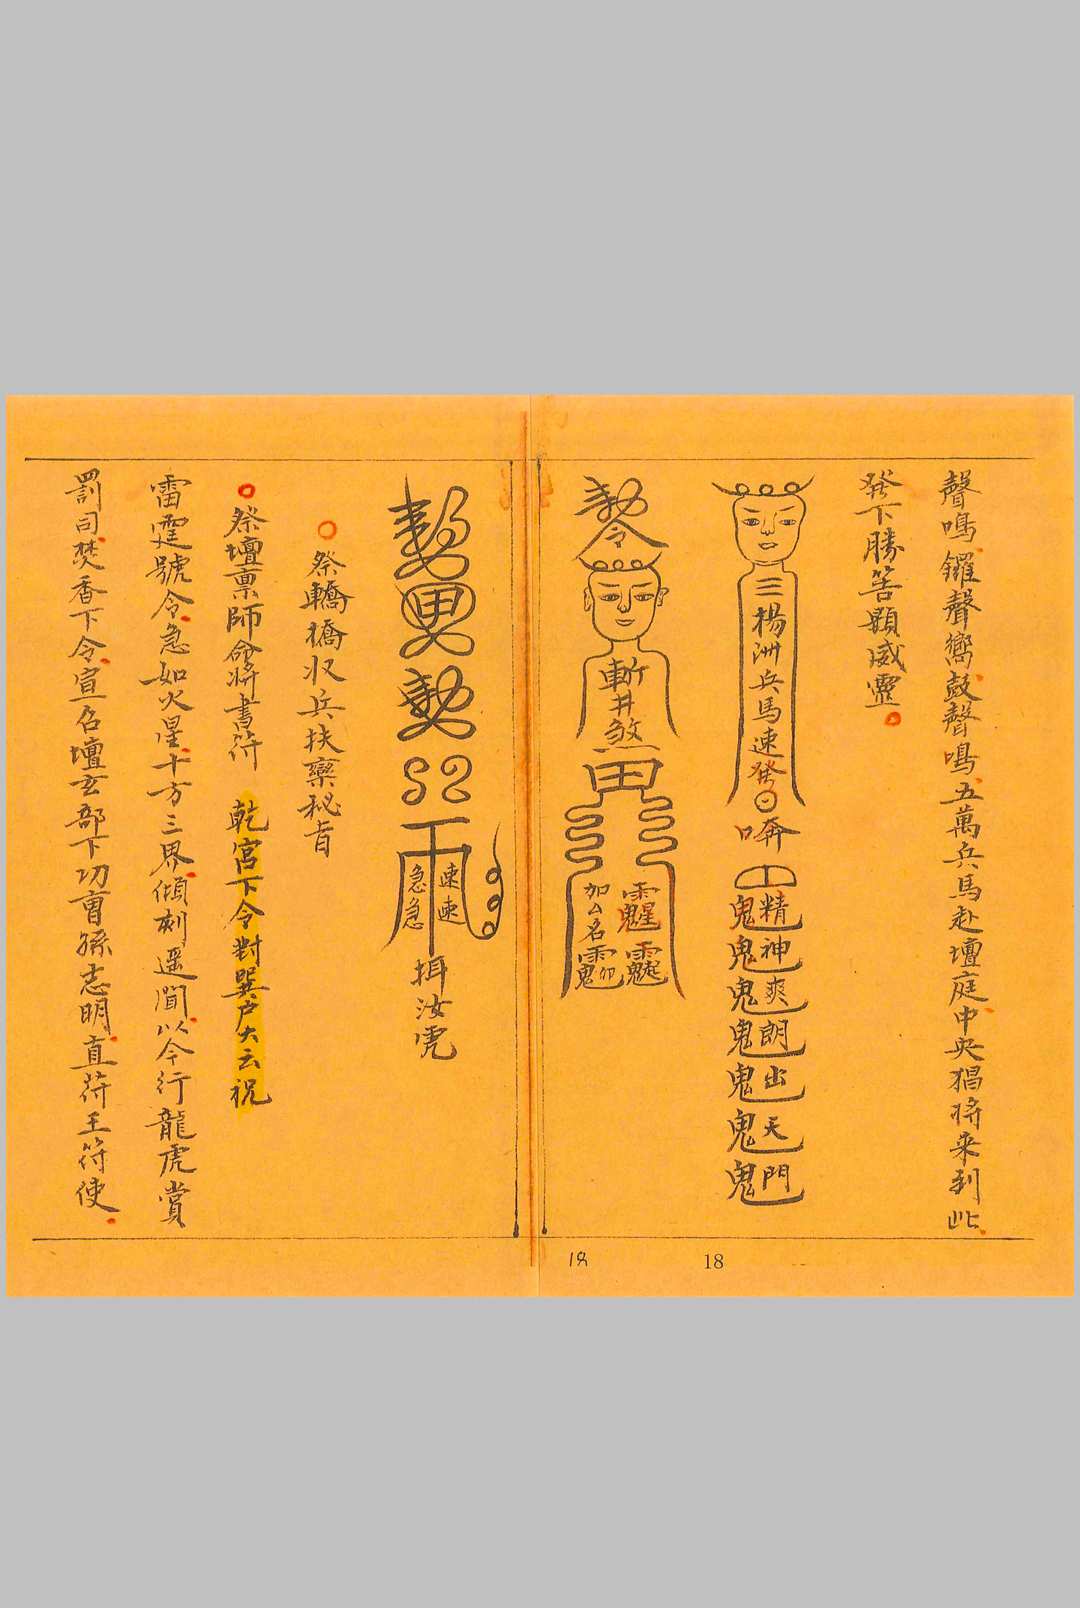 聲鳴鑼聲響鼓聲鳴五萬兵馬赴壇庭中央猖将来到此
発下勝筶顯威靈
三楊洲兵馬速発
精神爽朗出天門
鬼鬼鬼鬼鬼鬼鬼
勅令
斬井煞
田
加厶名
勅
勅
雨
速速
急急
揖汝虎
祭轎橋収兵扶欒秘旨
祭壇禀師命将書符 乾宮下令對巽户大云祝
雷霆號令急如火星十方三界傾刻遥聞以今行龍虎賞
罰司焚香下令宣召壇玄部下功曹孫志明直苻王符使
18
18